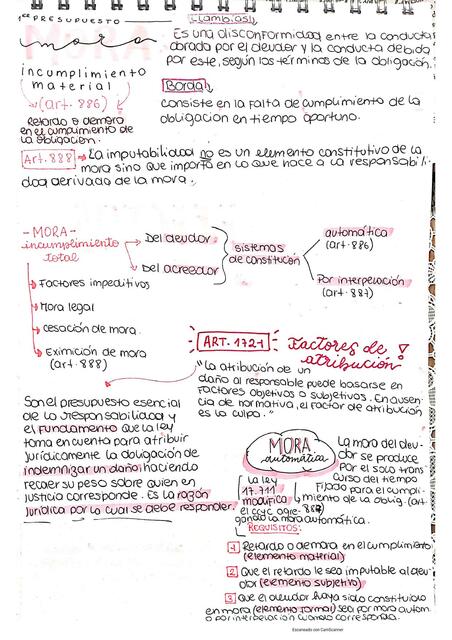 1er PRESUPUESTO
mora
incumplimiento
material
(art. 886)
Retardo o demora
en el cumplimiento de
la obligación.
(Llambías)
Es una disconformidad entre la conducta
obrada por el deudor y la conducta debida
por este, según los términos de la obligación.
Borda
consiste en la falta de cumplimiento de la
obligacion en tiempo oportuno.
Art. 888 → La imputabilidad no es un elemento constitutivo de la
mora sino que importa en lo que hace a la responsabili-
dad derivada de la mora.
- MORA -
incumplimiento
total
Del deudor
Del acreedor
sistemas
de constitución
automática
(art. 886)
Por interpelación
(art. 887)
Factores impeditivos
Mora legal
cesación de mora
Eximición de mora
(art. 888)
ART. 1721
Factores de
atribución!
"La atribución de un
daño al responsable puede basarse en
factores objetivos o subjetivos. En ausen-
cia de normativa, el factor de atribución
es la culpa."
Son el presupuesto esencial
de la responsabilidad y
el fundamento que la ley
toma en cuenta para atribuir
jurídicamente la obligación de
indemnizar un daño, haciendo
recaer su peso sobre quien en
justicia corresponde. Es la razón
jurídica por la cual se debe responder.
MORA
automática
La mora del deu-
dor se produce
Por el solo trans
curso del tiempo
Fijado para el cumpli-
miento de la oblig. (art.
la ley
17.711
modifica
el ccyc
gando la mora automática.
REQUISITOS:
1 Retardo o demora en el cumplimiento
(elemento material)
2 Que el retardo le sea imputable al deu-
dor (elemento subjetivo)
3 Que el deudor haya sido constituido
en mora (elemento formal) sea por mora autom.
o por interpelación cuando corresponda.
Escaneado con CamScanner